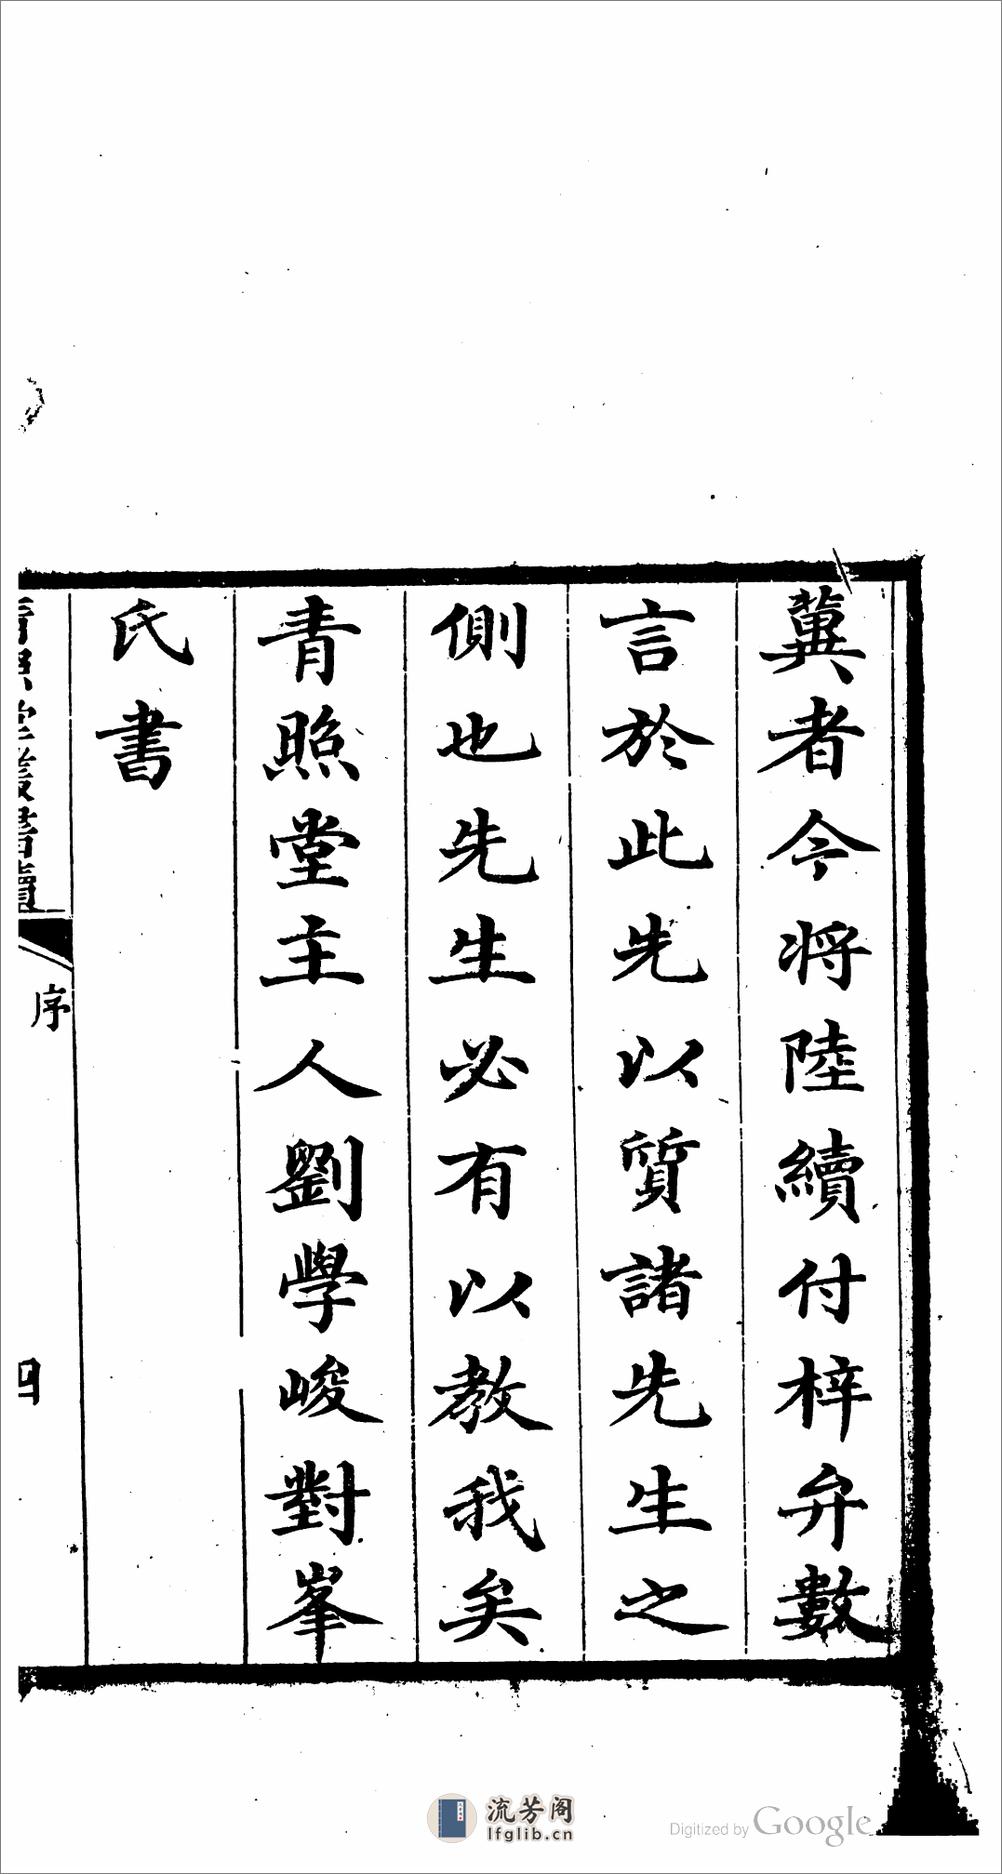 冀者今将陸續付梓弁數
言於此先以質諸先生之
側也先生必有以教我矣
青照堂主人劉學峻對峯
氏書
青照堂叢書續
序
四
流芳阁
lfglib.cn
Digitized by Google